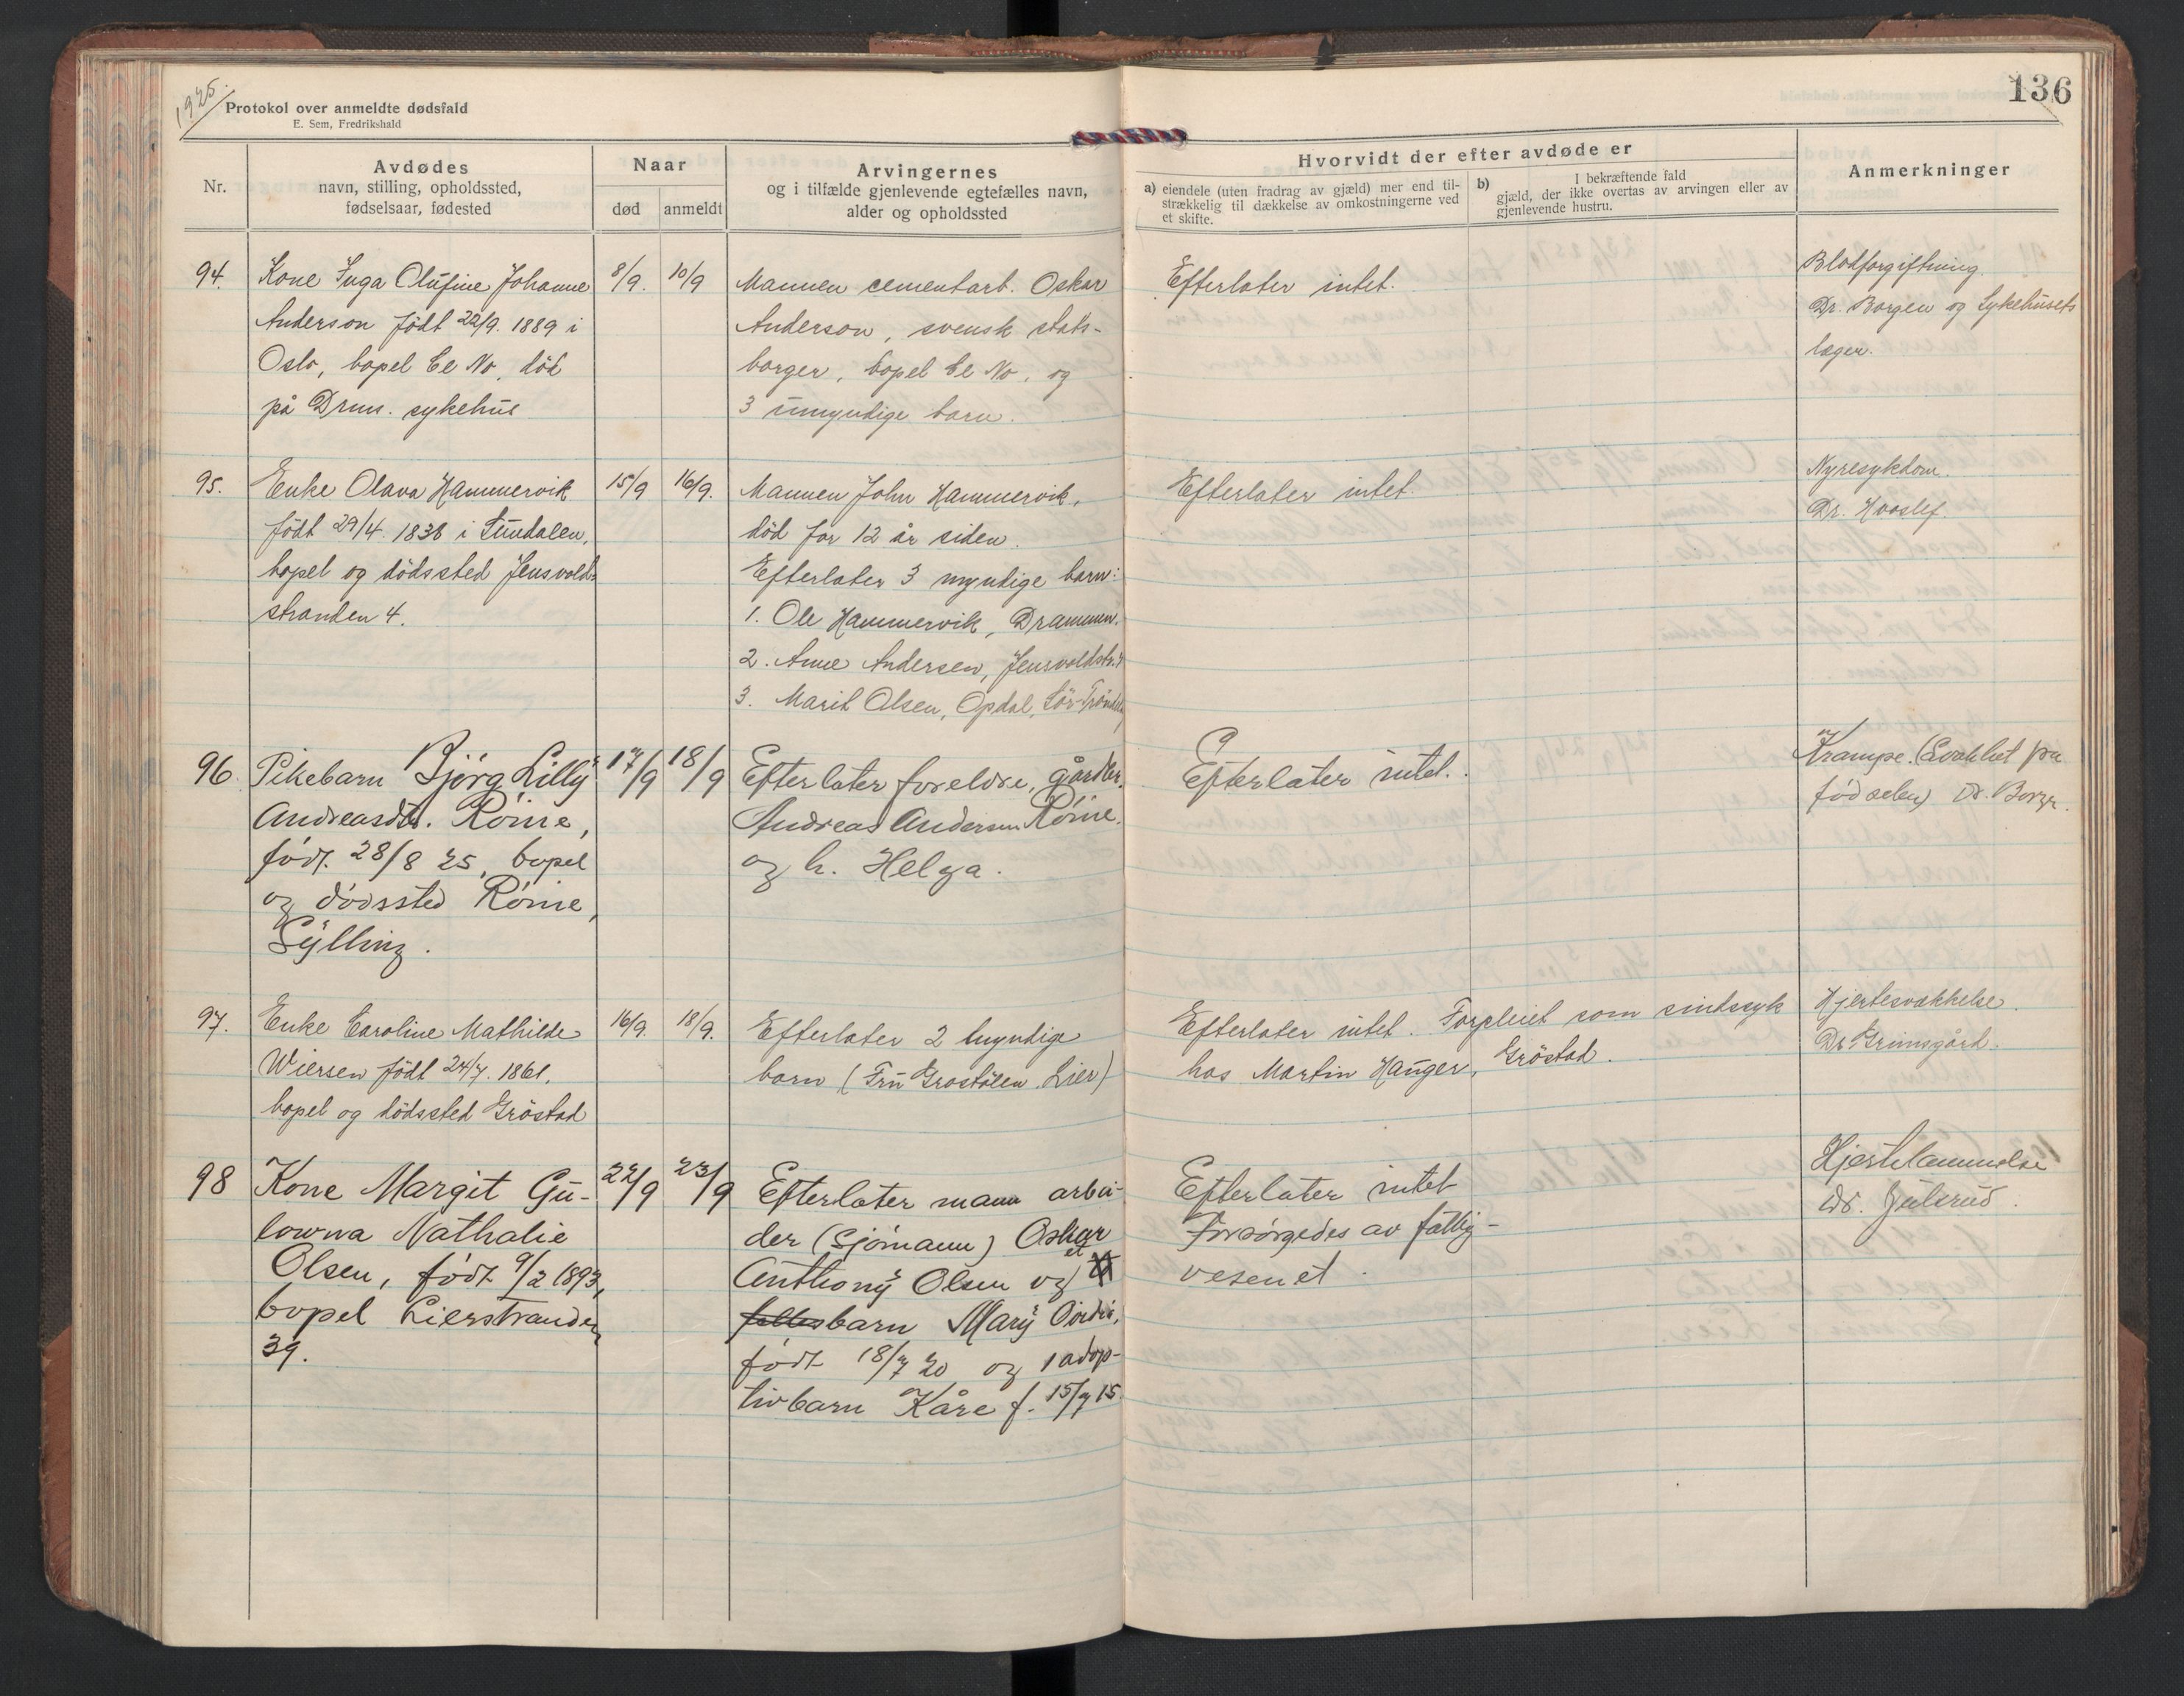 1925.
Protokol over anmeldte dødsfald
E. Sem, Fredrikshald
136
Nr.
Avdødes
navn, stilling, opholdssted,
fødselsaar, fødested
Naar
død
anmeldt
Arvingernes
og i tilfælde gjenlevende egtefælles navn,
alder og opholdssted
Hvorvidt der efter avdøde er
a) eiendele (uten fradrag av gjæld) mer end til-
strækkelig til dækkelse av omkostningerne ved
et skifte.
b) I bekræftende fald
gjæld, der ikke overtas av arvingen eller av
gjenlevende hustru.
Anmerkninger
94.
Kone Inga Olufine Johanne
Anderson født 22/9. 1889 i
Oslo, bopel Ce No, död
på Drms. sykehus
8/9.
10/9
Mannen cementarb. Oskar
Anderson, svensk stats-
borger, bopel Ce No, og
3 umyndige barn.
Efterlater intet.
Blodforgiftning.
Dr. Borgen og Sykehusets
læger.
95.
Enke Olava Hammervik
født 29/4. 1838 i Sundalen,
bopel og dödssted Jensvolds-
stranden 4.
15/9
16/9.
Mannen John Hammervik,
död for 12 år siden.
Efterlater 3 myndige barn:
1. Ole Hammervik, Drammen.
2. Anne Andersen, Jensvoldstr. 4
3. Marit Olsen, Opdal, Sör-Tröndelag
Efterlater intet.
Nyresykdom.
Dr. Hvoslef.
96.
Pikebarn Bjørg Lilly
Andreasdtr. Röine,
född. 28/8 25, bopel
og dödssted Röine,
Sylling.
17/9
18/9
Efterlater foreldre, gårdbr.
Andreas Andersen Röine.
og h. Helga.
Efterlater intet.
Krampe. (Svakhet fra
födselen) Dr. Borge.
97.
Enke Caroline Mathilde
Wiersen født 24/7. 1861.
bopel og dödssted Gröstad
16/9.
18/9.
Efterlater 2 myndige
barn (Fru Grostölen, Lier)
Efterlater intet. Forpleiet som sindssyk
hos Martin Hauger, Gröstad.
Hjertesvækkelse.
Dr. Grimsgård.
98
Kone Margit Gu-
lowna Nathalie
Olsen, född 9/2 1893,
bopel Lierstranden
39.
22/9
23/9
Efterlater mann arbei-
der (sjömann) Oskar
Anthony Olsen og et
felles barn Mary
född 18/7 20 og 1 adop-
tivbarn Kåre f. 15/7 15.
Efterlater intet
Forsörgedes av fattig-
vesenet.
Hjertelammelse
Dr. Julsrud.